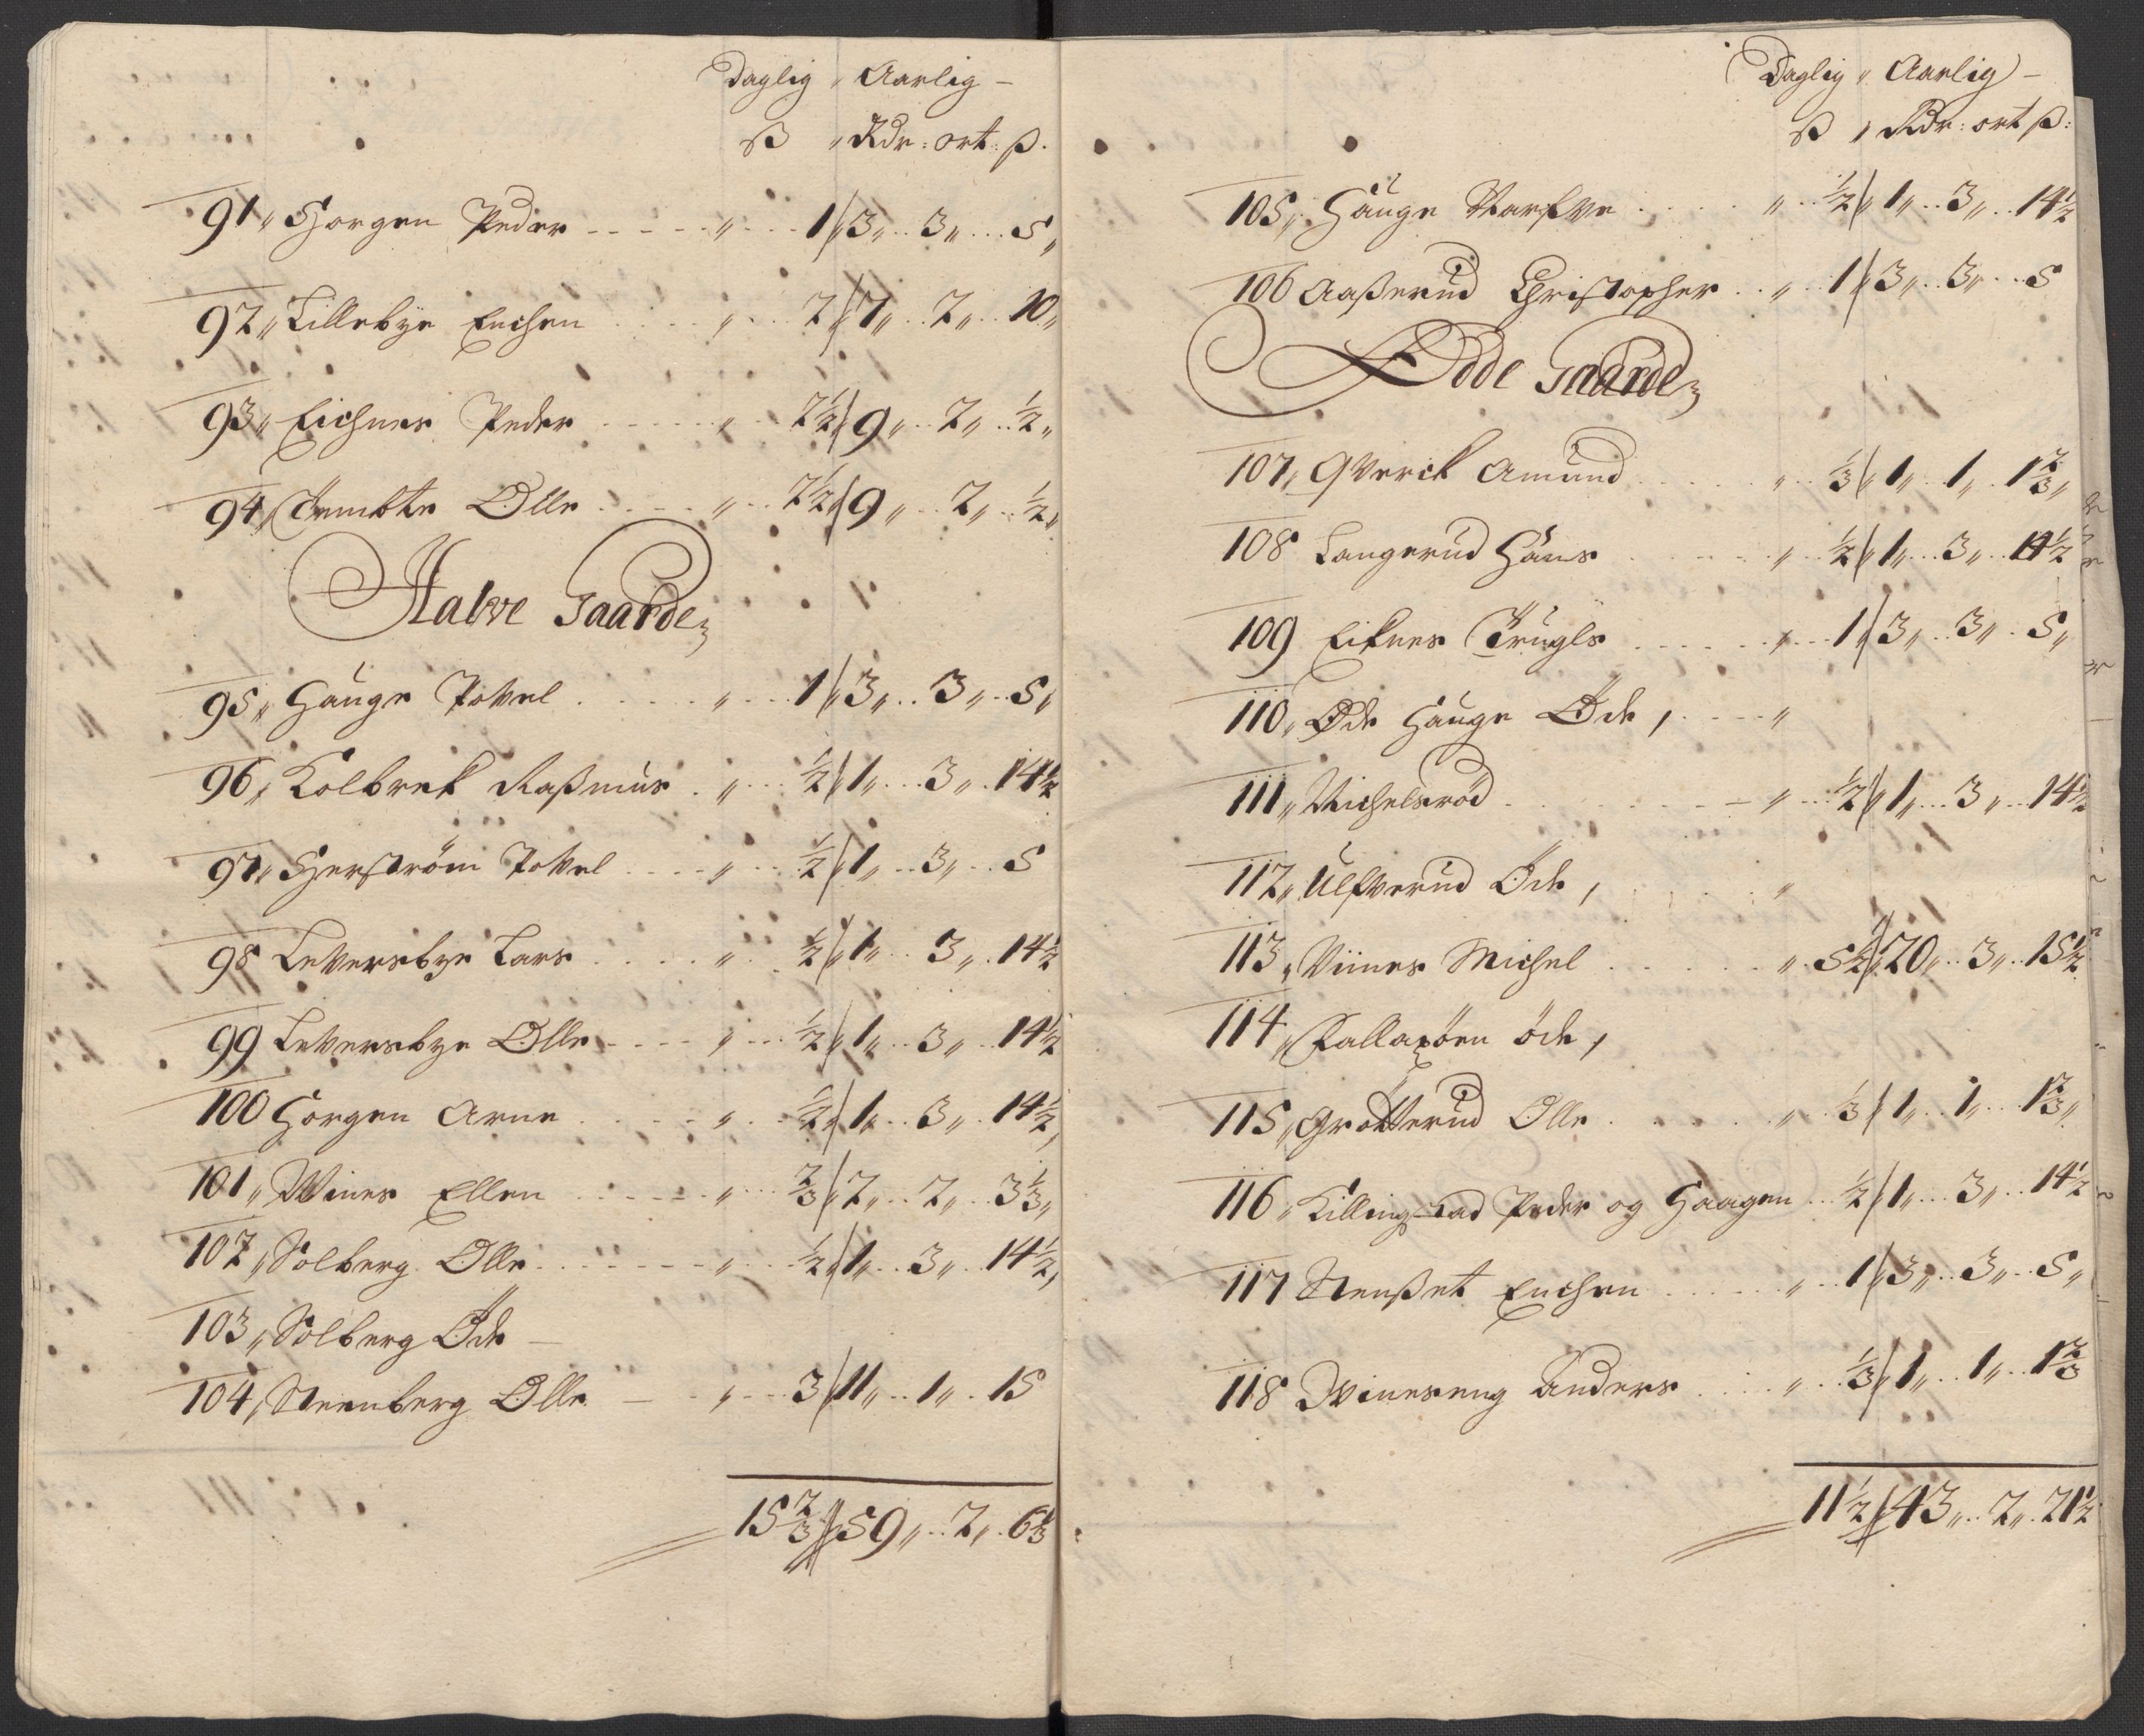 Daglig „ Aarlig –
ß „ Rdr: ort: ß.
91 „ Horgen Peder „ 1 // 3 „ 3 „ 5 „
92 „ Lillebye Enchen „ 2 // 7 „ 2 „ 10 „
93 „ Eichnes Peder „ 2½ // 9 „ 2 „ ½ „
94 „ Tembte Olle „ 2½ // 9 „ 2 „ ½ „
Halve Gaarde
95 „ Hauge Povel „ 1 // 3 „ 3 „ 5 „
96 „ Kolbrek Raßmus „ ½ // 1 „ 3 „ 14½
97 „ Hierström Povel „ ½ // 1 „ 3 „ 5
98 Leversbye Lars „ ½ // 1 „ 3 „ 14½
99 Leversbye Olle „ ½ // 1 „ 3 „ 14½
100 Horgen Arne „ ½ // 1 „ 3 „ 14½
101 „ Wines Ellen „ ⅔ // 2 „ 2 „ 3⅓ „
102 „ Solberg Olle „ ½ // 1 „ 3 „ 14½ „
103 „ Solberg Öde –
104 „ Steenberg Olle „ 3 // 11 „ 1 „ 15
15⅔ // 59 „ 2 „ 6⅓
Daglig „ Aarlig –
ß „ Rdr: ort ß:
105 „ Hauge „ ½ // 1 „ 3 „ 14½
106 Aaßerud Christopher „ 1 // 3 „ 3 „ 5
Öde Gaarde
107 „ Qverck Amund „ ⅓ // 1 „ 1 „ 1⅔ „
108 Langerud Hans „ ½ // 1 „ 3 „ 14½
109 Eiknes Trugls „ 1 // 3 „ 3 „ 5 „
110 „ Öde Hauge Öde, „
111 „ Michelsröd „ ½ // 1 „ 3 „ 14½
112 „ Ulfverud Öde, „
113 „ Viines Michel „ 5½ // 20 „ 3 „ 15½
114 „ öde,
115 „ Grotterud Olle „ ⅓ // 1 „ 1 „ 1⅔ „
116 „ Killingstad Peder og Haagen ½ // 1 „ 3 „ 14½
117 Stenßet Enchen „ 1 // 3 „ 3 „ 5 „
118 Wineseng Anders „ ⅓ // 1 „ 1 „ 1⅔
11½ // 43 „ 2 „ 21½